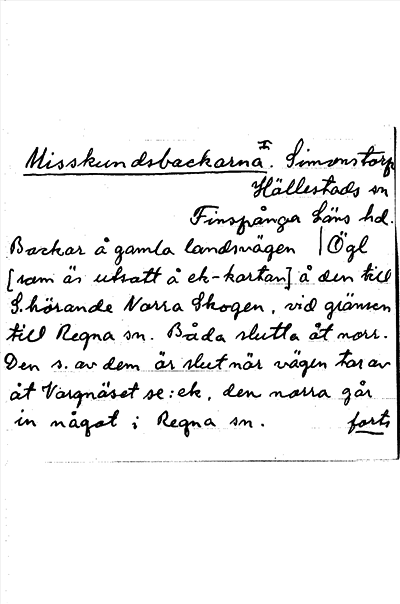 Misskundsbackarna I. Simonstorp
Hällestads sn
Finspånga läns hd.
Backar å gamla landsvägen | Ögl
[som är utsatt å ek-kartan] å den till
S. hörande Norra Skogen, vid gränsen
till Regna sn. Båda slutta åt norr.
Den s. av dem är slut när vägen tar av
åt Vargnäset se: ek, den norra går
in något i Regna sn. forts